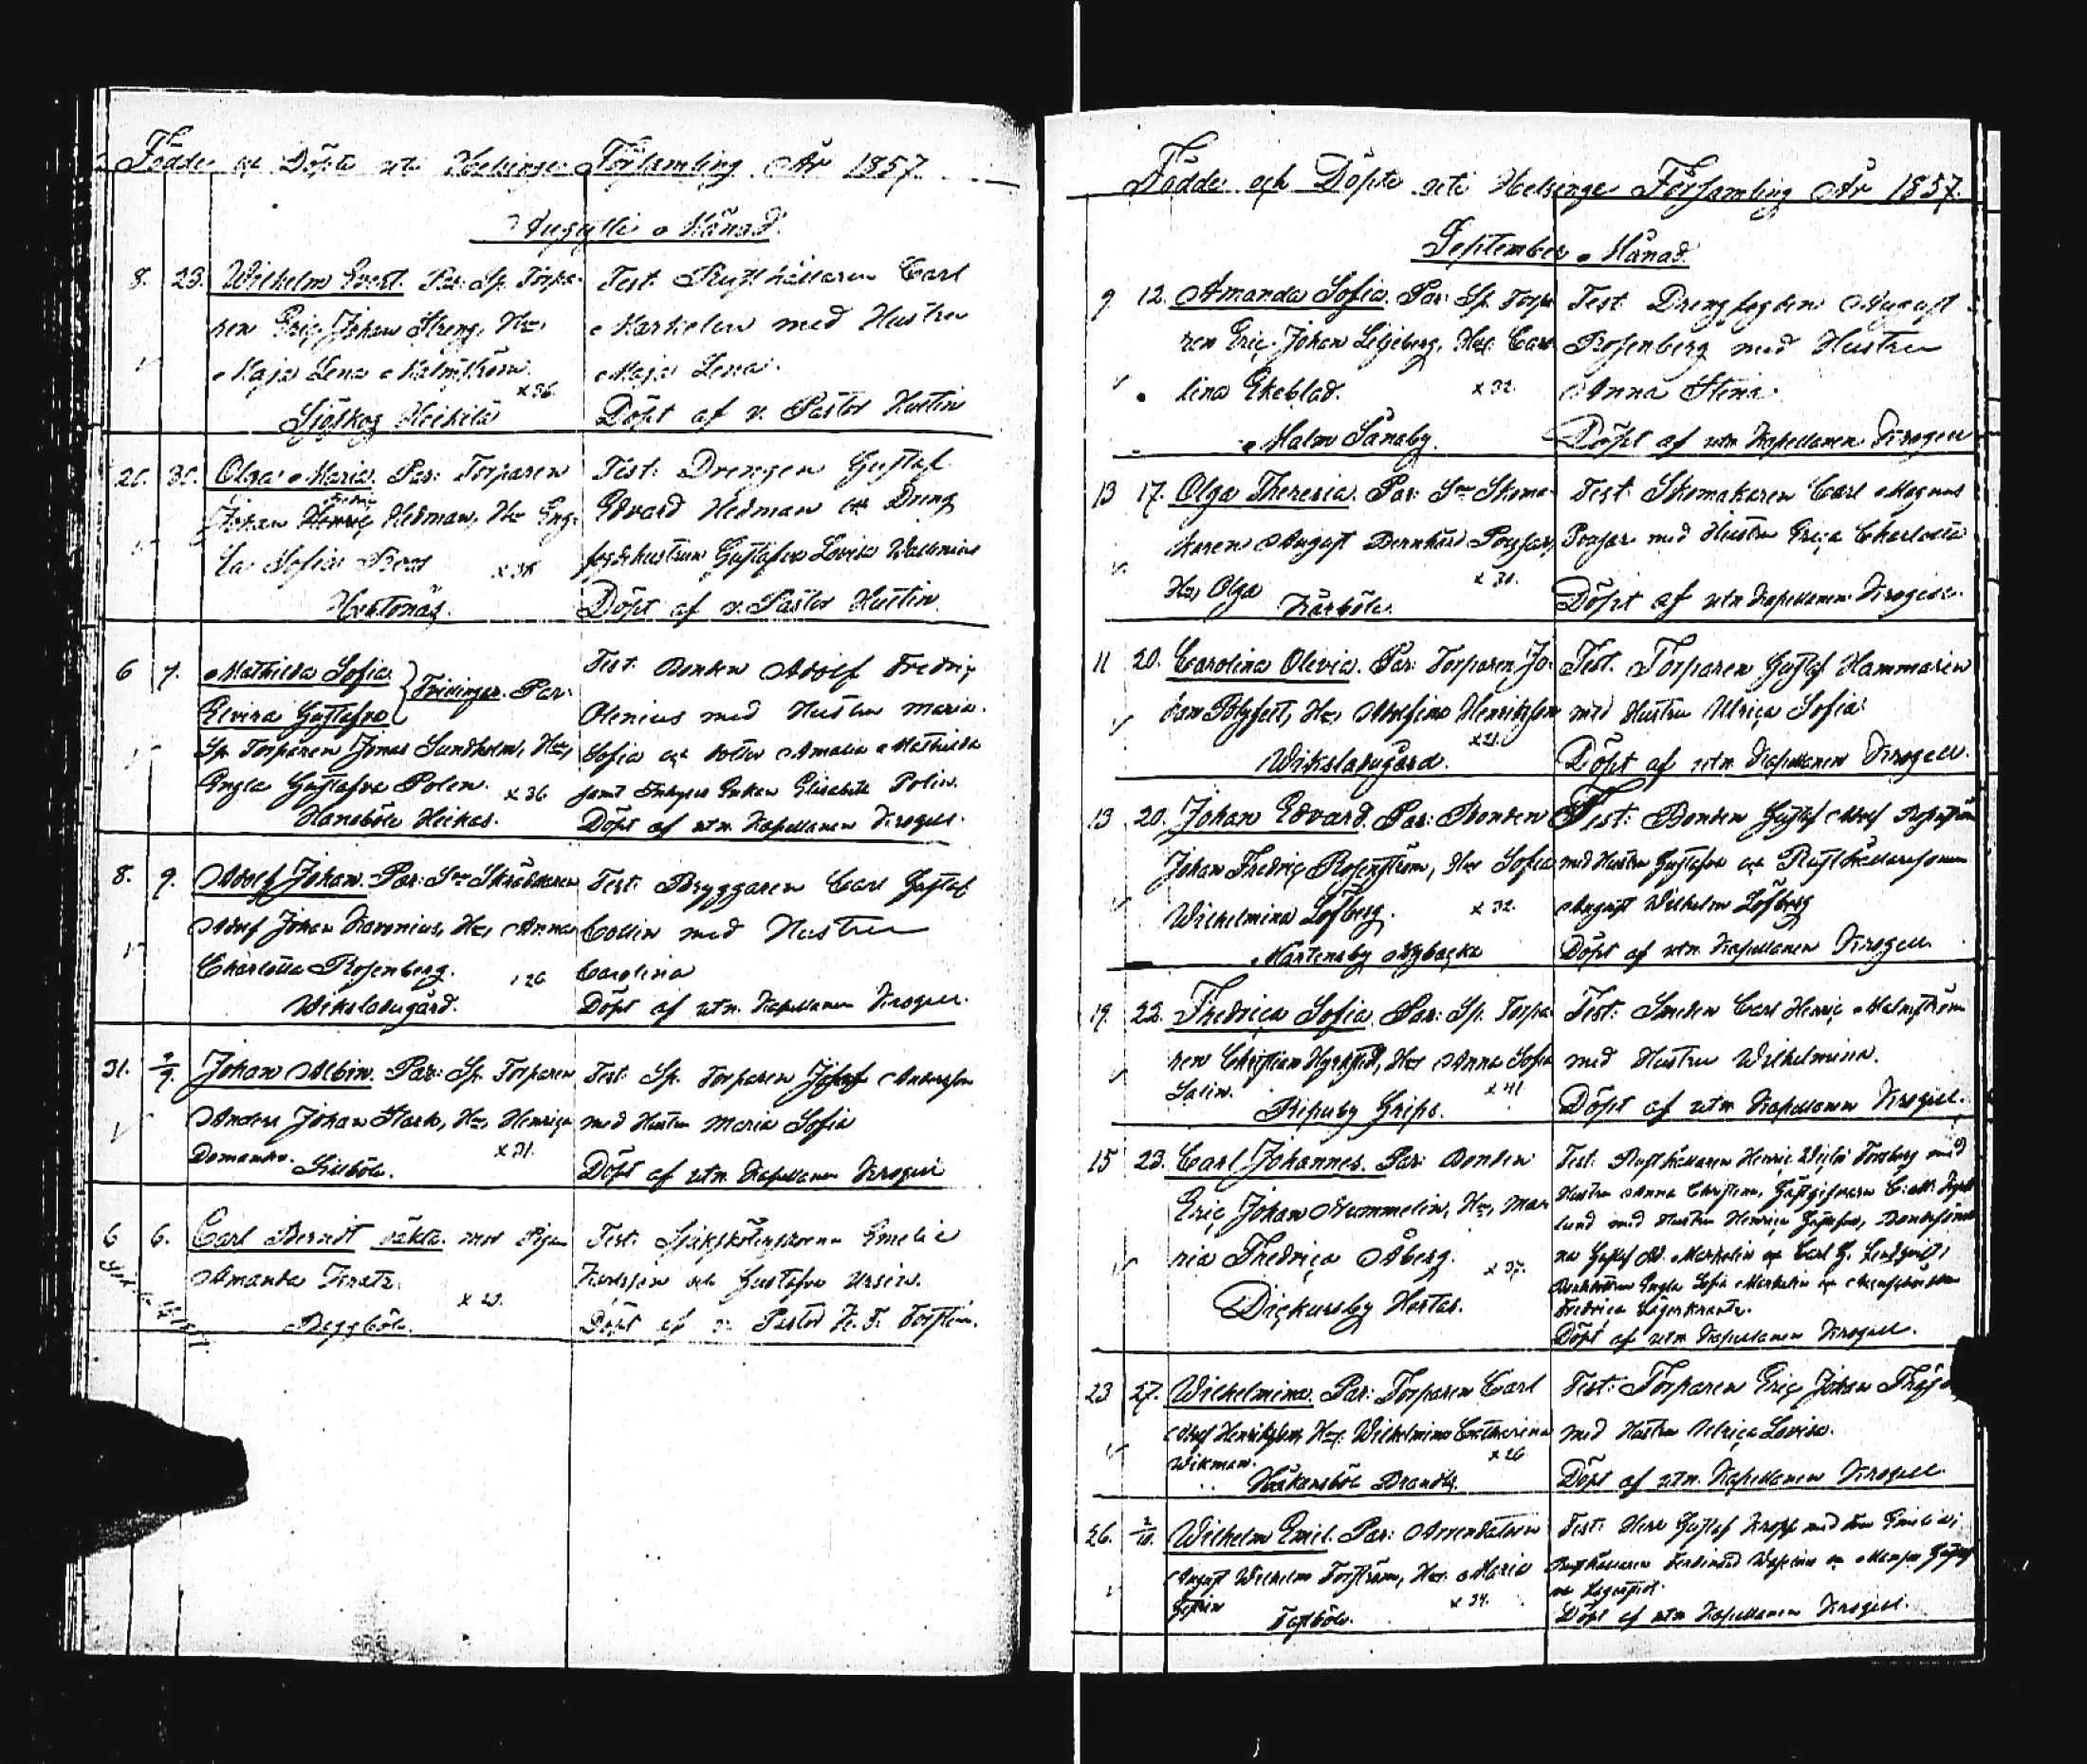 Födde och Döpte uti Helsinge Församling År 1857.
Augusti Månad.
8. 23. Wilhelm Evert. Par: Sp. Torpa-
ren Eric Johan Streng, Hu
Maja Lena Malmström.
x 36.
Sjöskog Heikilä
Test: Rusthållaren Carl
Markelin med Hustru
Maja Lena.
Döpt af v. Pastor Hertin
20. 30. Olga Maria. Par: Torparen
Fredric
Johan Henric Hedman, Hu Eng-
la Sofia Roos
x 38
Hertonäs.
Test: Drengen Gustaf
Edvard Hedman och Dreng
fogdehustrun Gustafva Lovisa Wallenius
Döpt af v. Pastor Hertin
6 7. Mathilda Sofia
Elvira Gustafva } Tvillingar. Par:
Sp. Torparen Jonas Sundholm, Hu,
Engla Gustafva Polen. x 36
Hanaböle Heikas.
Test: Bonden Adolf Fredric
Olenius med Hustru Maria
Sofia och dotter Amalia Mathilda
samt Enkan Elisabeth Polin.
Döpt af utn. Kapellanen Krogell.
8. 9. Adolf Johan. Par: Skräddaren
Adolf Johan Karonius, Hu, Anna
Charlotta Rosenberg. 26
Wiksladugård.
Test: Bryggaren Carl Gustaf
Collin med Hustru
Carolina
Döpt af utn. Kapellanen Krogell.
31. 2/9. Johan Albin. Par: Sp. Torparen
Anders Johan Stark, Hu, Henrica
Domander. x 31.
Sillböle.
Test: Sp. Torparen Josef Andersson
med Hustru Maria Sofia
Döpt af utn. Kapellanen Krogell
6 6. Carl Berndt oäkta. mor Pigan
Amanda Kratz.
x 23.
Beggböle.
Test: Sjuksköterskorna Emelie
Karlsson och Gustafva Ursin.
Döpt af v. Pastor
Födde och Döpte uti Helsinge Församling År 1857.
September Månad.
9 12. Amanda Sofia. Par: Sp. Torpa
ren Eric Johan Liljeberg, Hu: Caro
lina Ekeblad. x 32.
Malm Sånaby.
Test: Drengfogden August
Rosenberg med Hustru
Anna Stina.
Döpt af utn. Kapellanen Krogell
13 17. Olga Theresia. Par: Skoma-
karen August Bernhard
Hu, Olga x 31.
Kårböle.
Test: Skomakaren Carl Magnus
med Hustru Erica Charlotta
Döpt af utn Kapellanen Krogell.
11 20. Carolina Olivia. Par: Torparen, Jo-
han Hu, Adolfina Henriksson
x 21.
Wiksladugård.
Test. Torparen Gustaf Hammarén
med Hustru Ulrica Sofia
Döpt af utn. Kapellanen Krogell.
13 20. Johan Edvard. Par: Bonden
Johan Fredric Rosenström, Hu Sofia
Wilhelmina Löfberg. x 32.
Mårtensby Nybacka
Test: Bonden Gustaf Adolf Rosenström
med Hustru Gustafva och Rusthållaresonen
August Wilhelm Löfberg
Döpt af utn. Kapellanen Krogell.
19. 22. Fredrica Sofia. Par: Sp. Torpa
ren Christian Hu Anna Sofia
Salin. x 41
Ripuby Grips.
Test: Smeden Carl Henric Malmström
med Hustru Wilhelmina.
Döpt af utn Kapellanen Krogell.
15 23. Carl Johannes. Par: Bonden
Eric Johan Nummelin, Hu, Ma
ria Fredrica Åberg. x 37.
Dickursby Hertas.
Test: Rusthållaren Henric Forsberg med
Hustru Anna Christina, Gästgifvaren
lund med Hustru Henrica Gustafva, Bondesöner
na Gustaf Ad. Markelin och Carl G. Lindqvist,
Engla Sofia Markelin och
Fredrica Lagerkrantz.
Döpt af utn Kapellanen Krogell.
23 27. Wilhelmina. Par: Torparen Carl
Adolf Henriksson, Hu: Wilhelmina Catharina
Wikman. x 26
Håkansböle Brandts.
Test: Torparen Eric Johan
med Hustru Ulrica Lovisa.
Döpt af utn. Kapellanen Krogell.
26. 2/10. Wilhelm Emil. Par: Arrendatorn
August Wilhelm Forsström, Hu. Maria
x 34.
Fastböle.
Test: Herr Gustaf Kropp med
Rusthållaren Ferdinand
Döpt af utn Kapellanen Krogell.